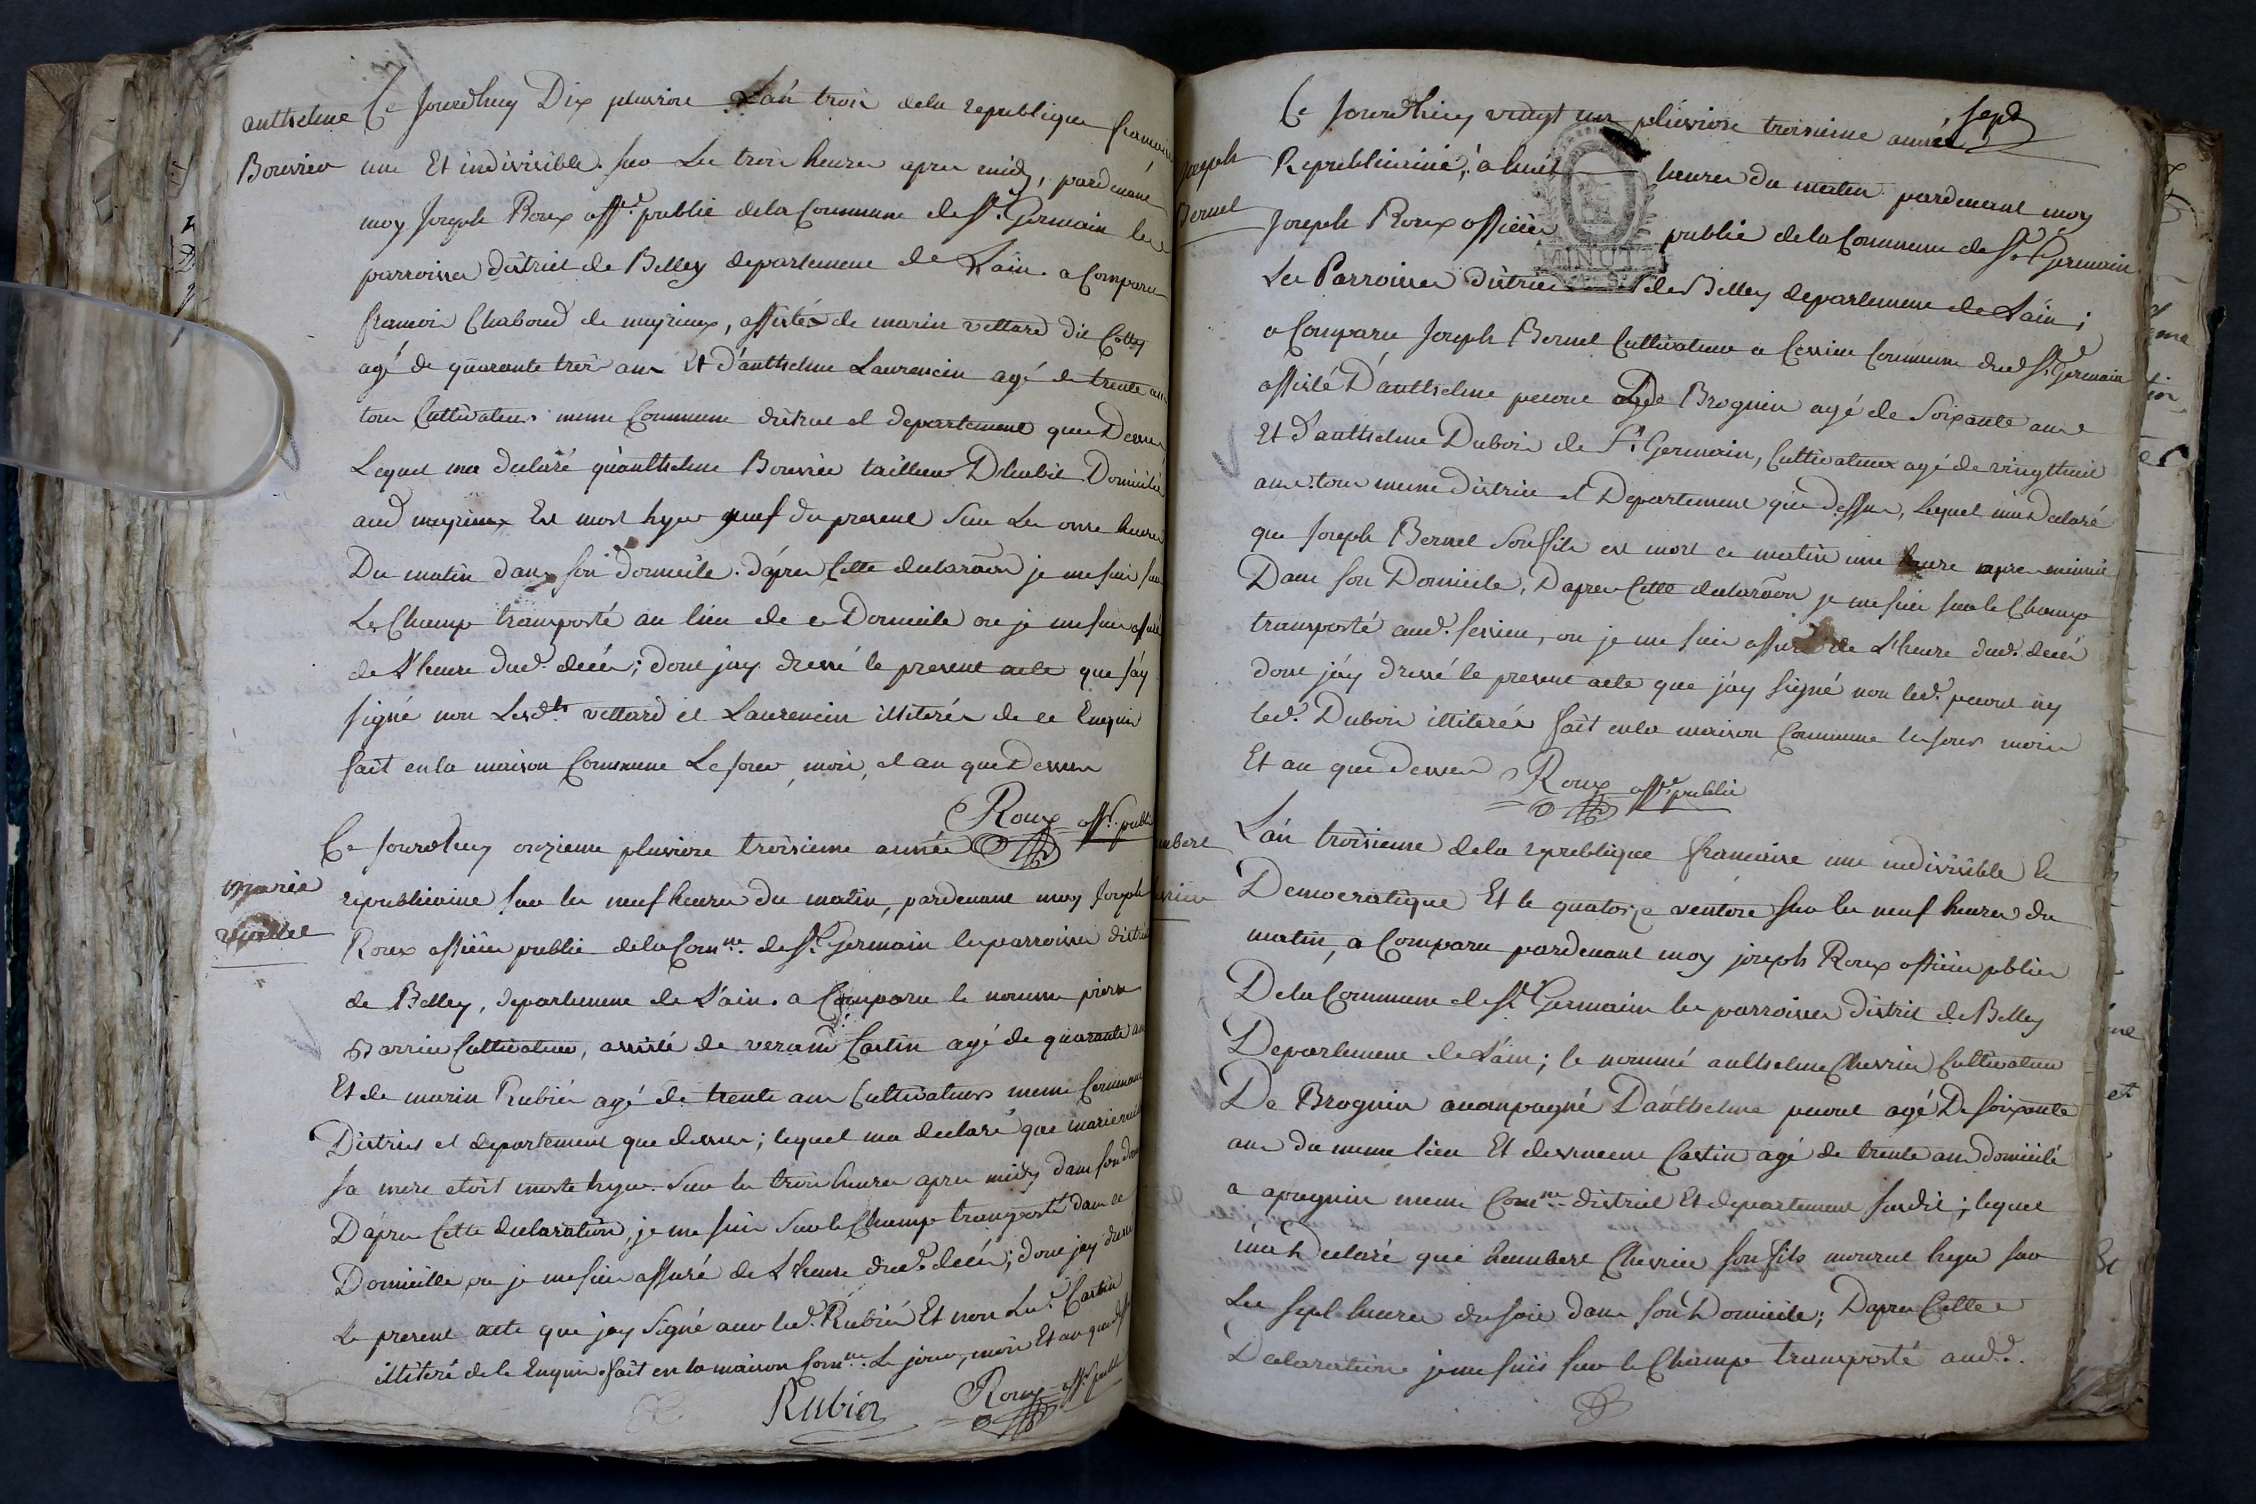 anthelme
Bouvier
Ce Jourdhuy Dix pluviose L'an trois dela republique francaise
une Et indivisible. sur Les trois heures apres midy, pardevant
moy Joseph Roux offr. public dela Commune de St. Germain les
parroisses district de Belley departement de Lain. a Comparu
francois Chaboud de meyrieux, assistés de marin vettard dit Collet
agé de quarante trois ans Et d'anthelme Laurencin agé de trente ans
tous Cultivateurs meme Commune district et departement que Dessus
Lequel ma declaré qu'anthelme Bouvier tailleur D'habit Domicilié
aud meyrieux Est mort hyer neuf du present sur Les onze heures
Du matin dans son domicile. d'apres Cette declaraon je me suis sur
Le Champ transporté au lieu de ce Domicile ou je me suis assuré
de L'heure dud. decés; dont jay dressé le present acte que j'ay
signé non Lesdts vettard et Laurencin illiterés de ce Enquis
fait en la maison Commune Le jour, mois, et an que Dessus
Roux offr. public
marie
Ce Jourdhuy onzieme pluviose troisieme année
republicaine sur les neuf heures du matin, pardevant moy Joseph
Roux officier public dela Comne. de St. Germain les parroisses district
de Belley, departement de L'ain. a Comparu le nommé pierre
Cultivateur, assisté de verand Castin agé de quarante ans
Et de marin Rubier agé de trente ans Cultivateurs meme Commune
District et departement que dessus; lequel ma declaré que marie
sa mere etoit morte hyer sur les trois heures apres midy dans son dom
D'apres Cette declaration, je me suis sur le Champ transporté dans ce
Domicille ou je me suis assuré de L'heure dud. decés; dont jay dressé
le present acte que jay signé avec led. Rubier Et non Led. Castin
illiteré de le Enquis. fait en la maison Comne. Le jour, mois Et an que dessus
Rubier Roux offr. public
sept
Joseph
Bernel
Ce Jourdhuy vingt un pluviose troisieme année
Republicaine, a huit heures du matin pardevant moy
Joseph Roux officier public dela Commune de St. Germain
MINUTE
Les Parroisses district de Belley departement de Lain;
a Comparu Joseph Bernel Cultivateur a Cessieu Commune dud St. Germain
assisté D'anthelme pecout de Brognin agé de Soixante ans
Et d'anthelme Dubois de St. Germain, Cultivateurs agé de vingthuit
ans. tous meme district et Departement que dessus, Lequel m'a declaré
que Joseph Bernel son fils est mort ce matin une heure apres minuit
Dans son Domicile, D'apres Cette declaraon je me suis sur le Champ
transporté aud. Sessieu, ou je me suis assuré de L'heure dud. decés
dont j'ay dressé le present acte que j'ay signé non led. pecout ny
led. Dubois illiterés fait en la maison Commune les jours mois
Et an que dessus Roux offr. public
L'an troisieme dela republique francaise une indivisible Et
Democratique Et le quatorze ventose sur les neuf heures du
matin, a Comparu pardevant moy joseph Roux officier public
Dela Commune de St. Germain les parroisses district de Belley
Departement de L'ain; le nommé anthelme Chevrier Cultivateur
De Brognin accompagné D'anthelme pecout agé De soixante
ans du meme lieu Et de vincent Castin agé de trente ans domicilié
a apregnin meme Comne. district Et departement susdit; lequel
m'a Declaré que humbert Chevrier son fils mourut hyer sur
Les sept heures du soir dans son Domicile; D'apres Cette
Declaration je me suis sur le Champ transporté aud.